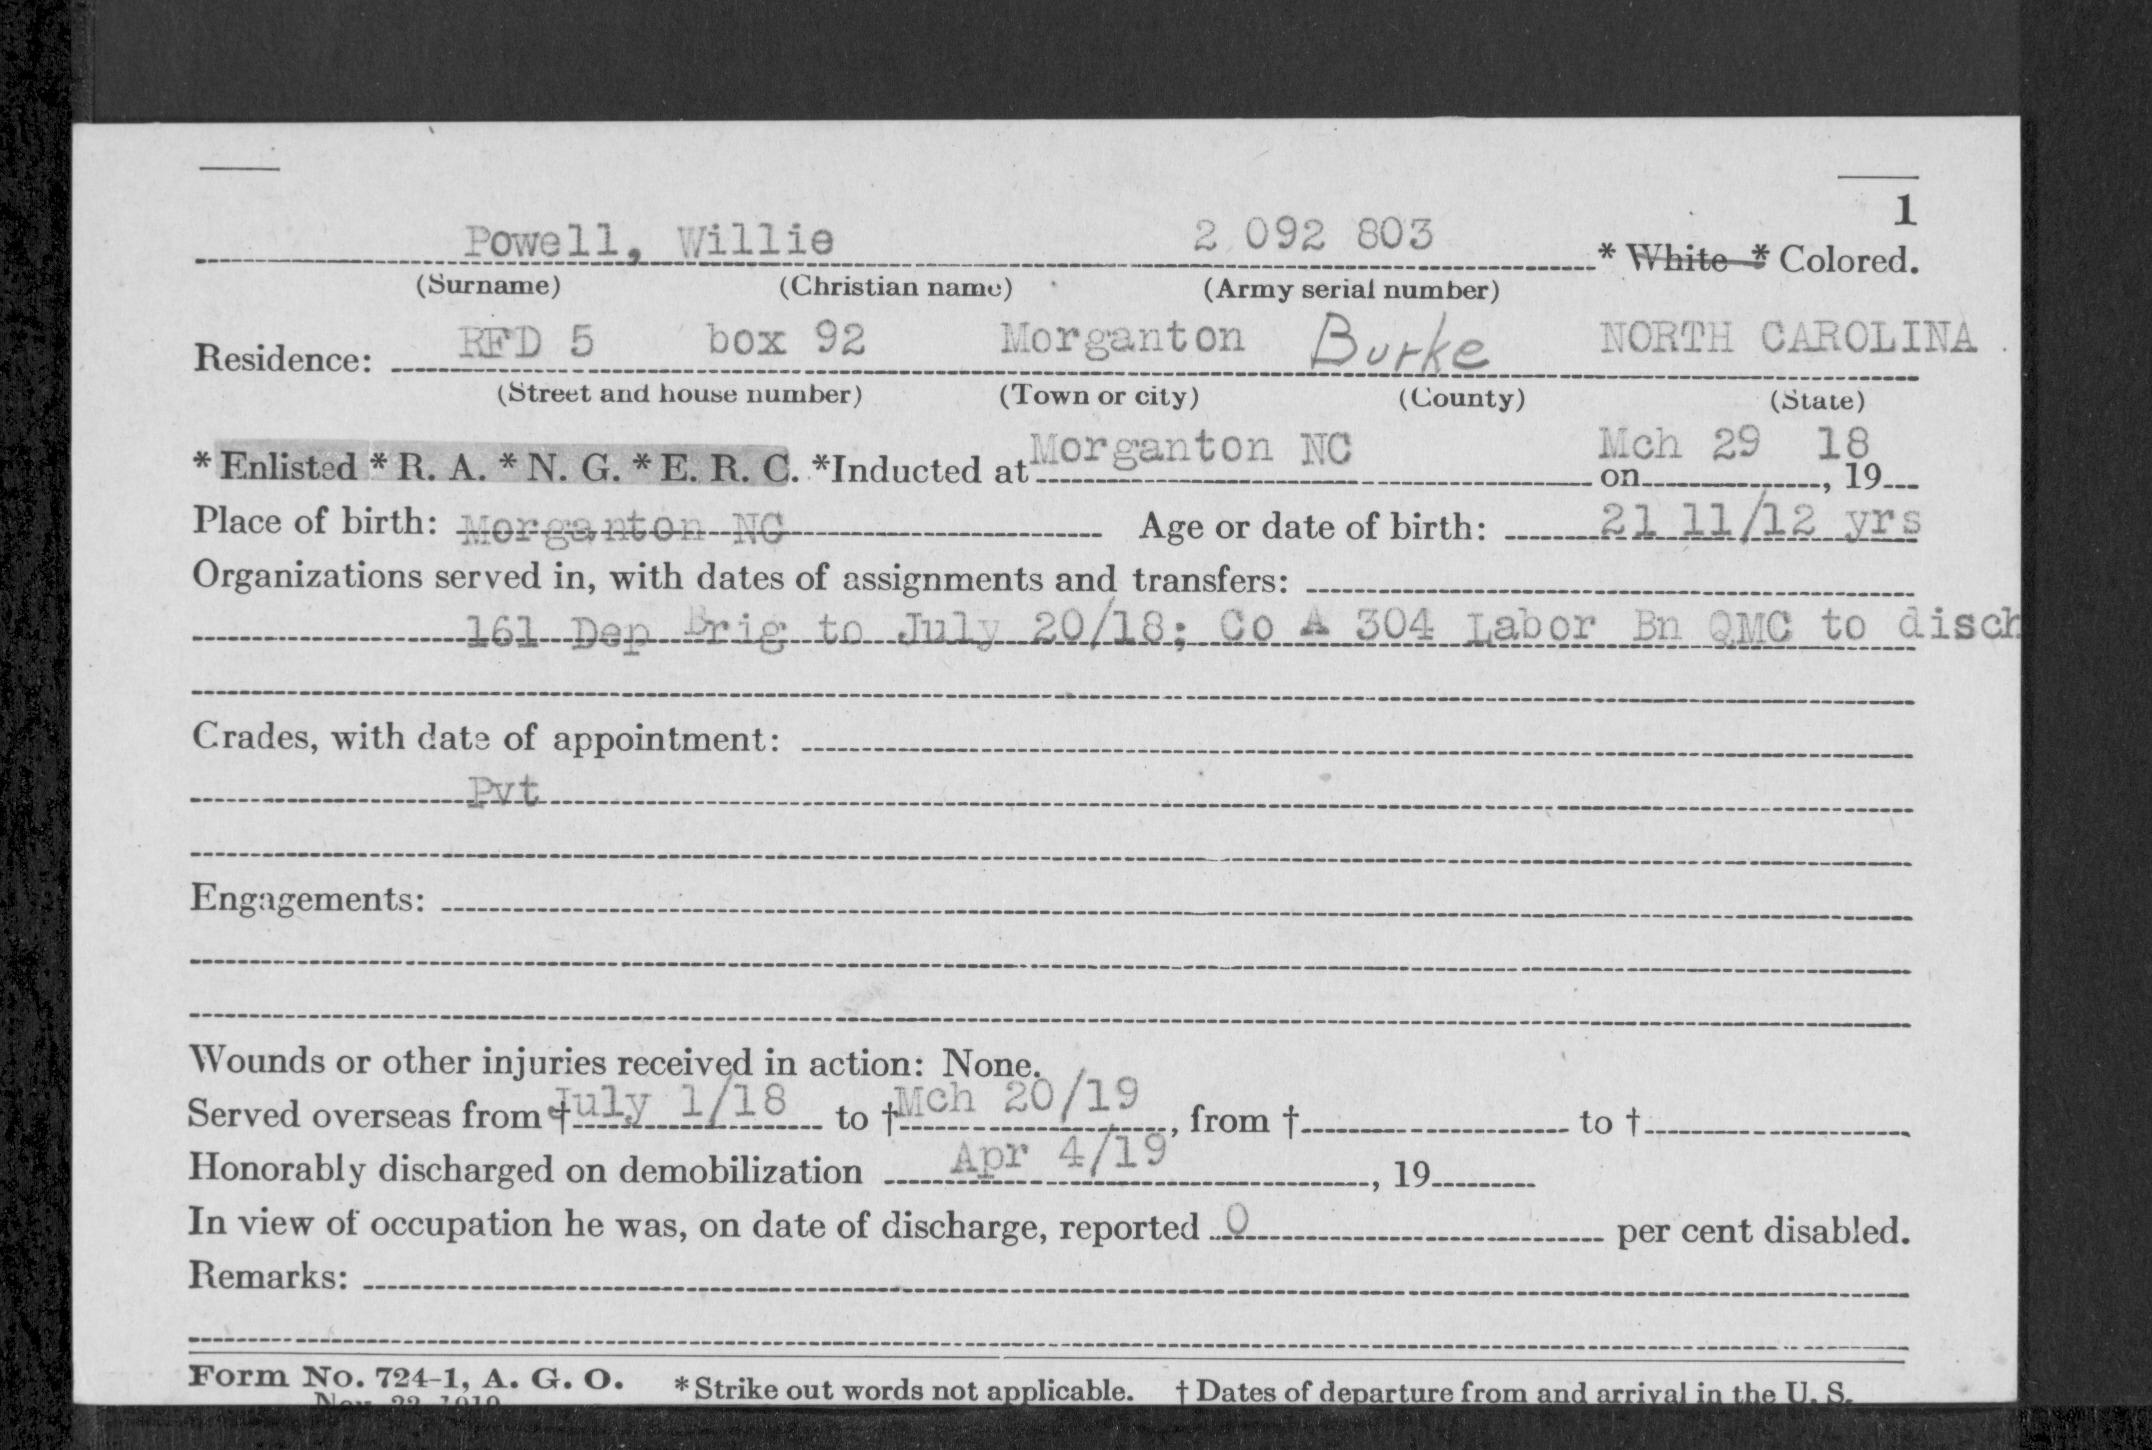 1
Powell, Willie 2 092 803 * White * Colored.
(Surname) (Christian name) (Army serial number)
Residence: RFD 5 box 92 Morganton Burke NORTH CAROLINA
(Street and house number) (Town or city) (County) (State)
* Enlisted * R. A. * N. G. * E. R. C. *Inducted at Morganton NC on Mch 29, 19 18
Place of birth: Morganton NC Age or date of birth: 21 11/12 yrs
Organizations served in, with dates of assignments and transfers:
161 Dep Brig to July 20/18; Co A 304 Labor Bn QMC to disch
Grades, with date of appointment:
Pvt
Engagements:
Wounds or other injuries received in action: None.
Served overseas from † July 1/18 to † Mch 20/19, from † to †
Honorably discharged on demobilization Apr 4/19, 19
In view of occupation he was, on date of discharge, reported 0 per cent disabled.
Remarks:
Form No. 724-1, A. G. O. * Strike out words not applicable. † Dates of departure from and arrival in the U. S.